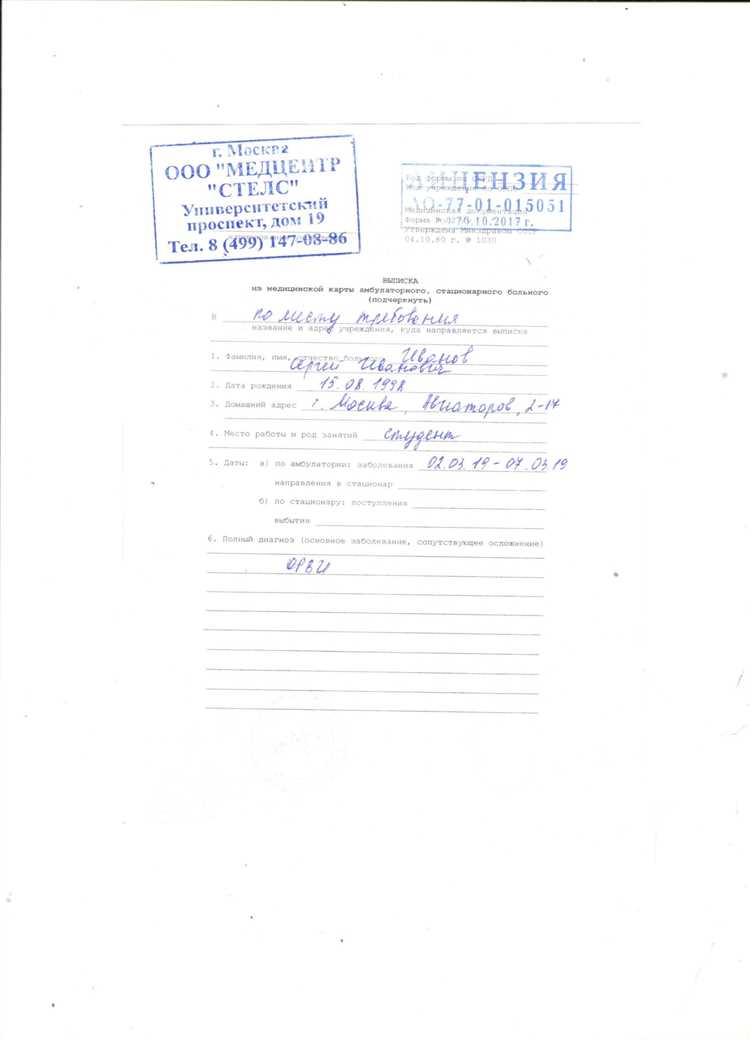 г. Москва
ООО "МЕДЦЕНТР
"СТЕЛС"
Университетский
проспект, дом 19
Тел. 8 (499) 147-08-86
ЛИЦЕНЗИЯ
ЛО-77-01-015051
Медицинская документация
Форма №
26.10.2017 г.
Утверждена Минздравом СССР
04.10.80 г. № 1030
ВЫПИСКА
из медицинской карты амбулаторного, стационарного больного
(подчеркнуть)
В по месту требования
название и адрес учреждения, куда направляется выписка
1. Фамилия, имя, отчество больного Иванов
Сергей Иванович
2. Дата рождения 15.08.1998
3. Домашний адрес г. Москва, Авиаторов, 2-17
4. Место работы и род занятий студент
5. Даты: а) по амбулатории: заболевания 02.03.19-07.03.19
направления в стационар
б) по стационару: поступления
выбытия
6. Полный диагноз (основное заболевание, сопутствующее осложнение)
ОРВИ